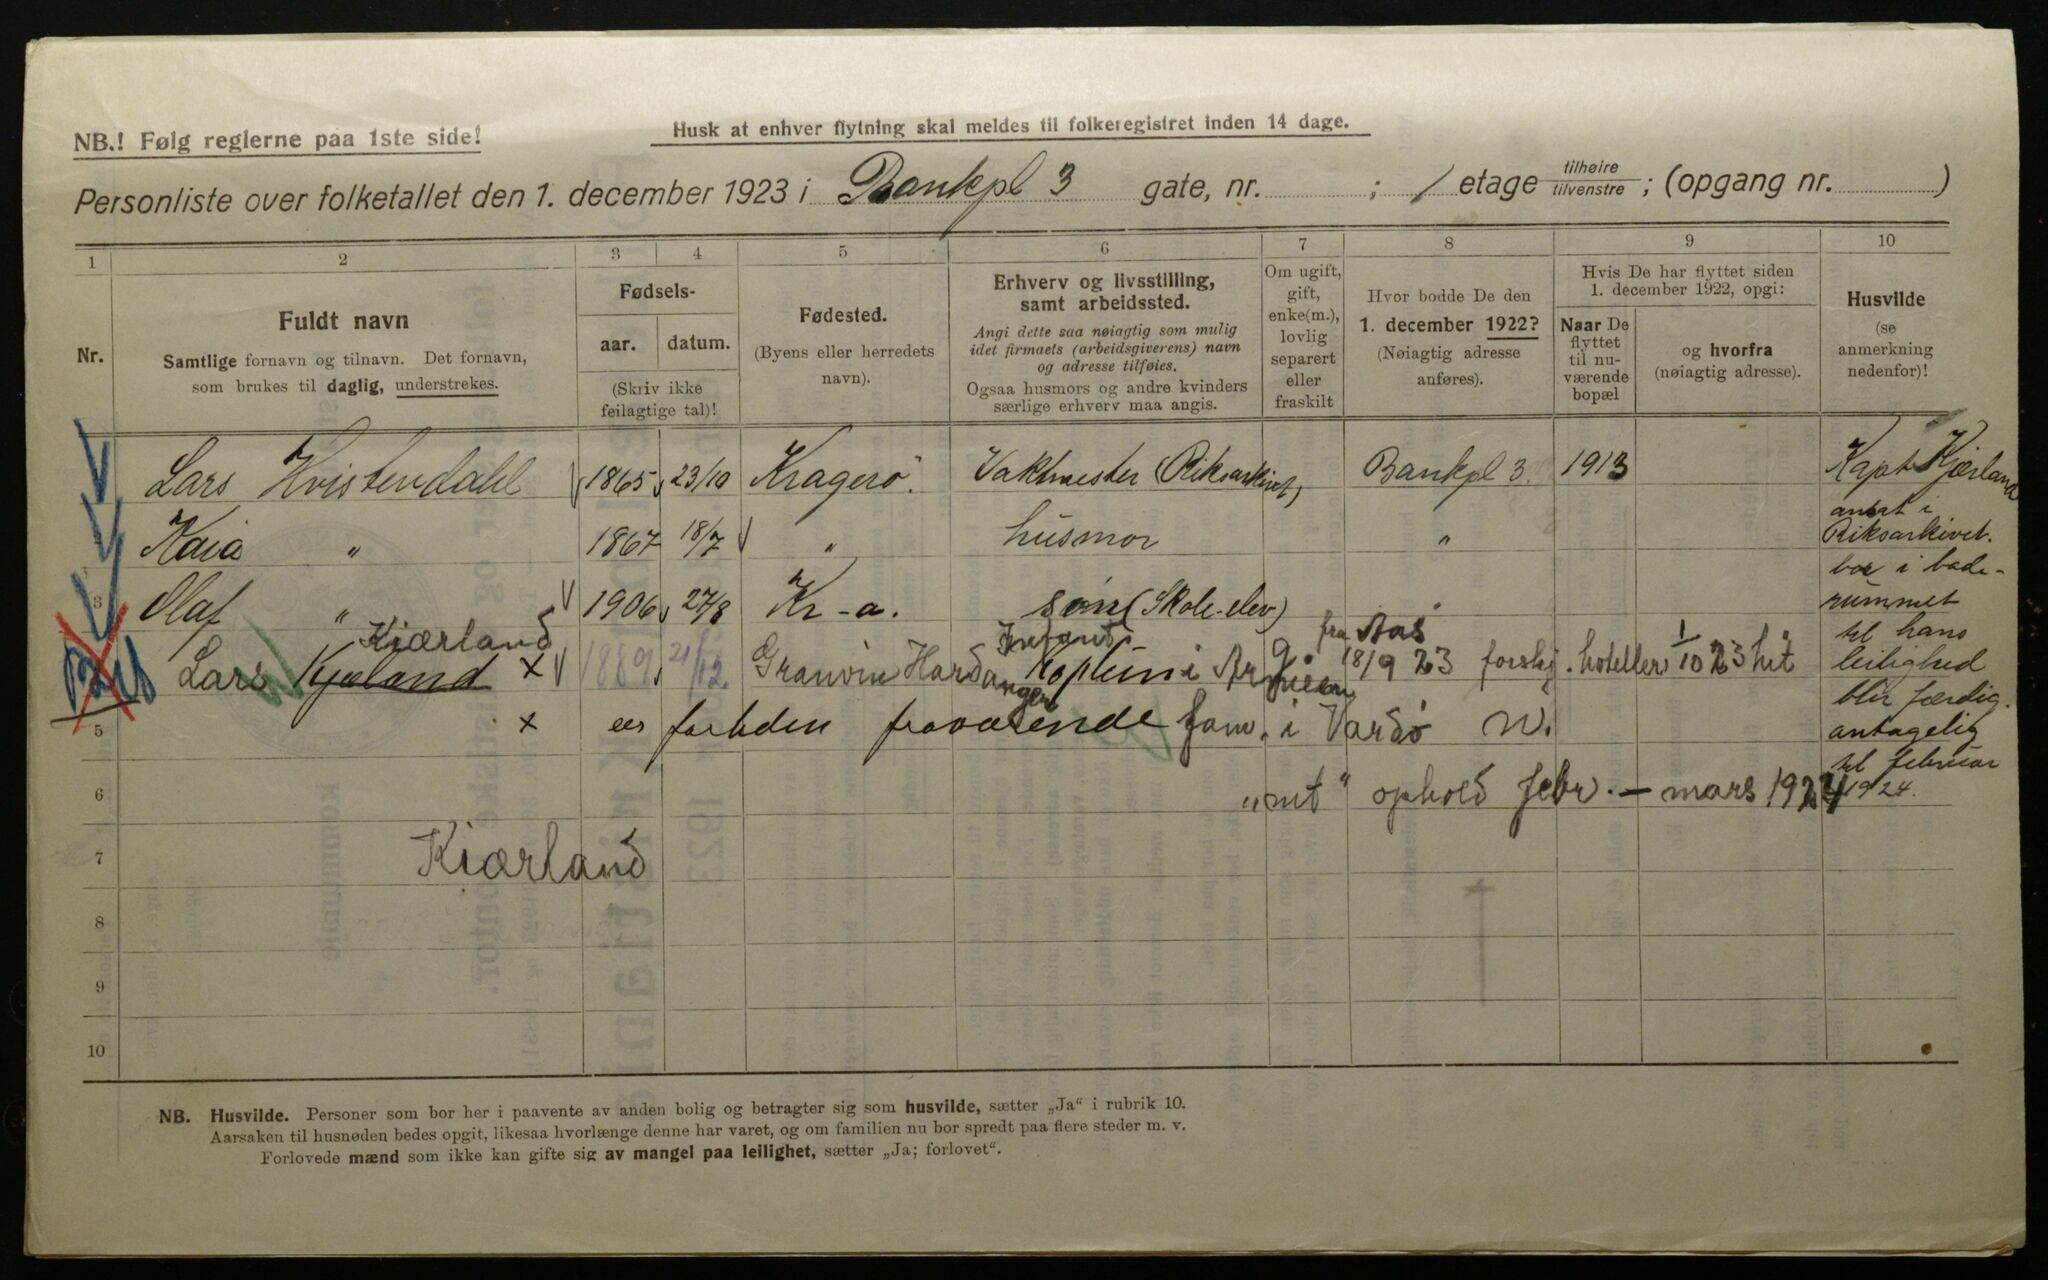 NB.! Følg reglerne paa 1ste side!
Husk at enhver flytning skal meldes til folkeregistret inden 14 dage.
Personliste over folketallet den 1. december 1923 i Bankpl 3 gate, nr. ; 1 etage tilhøire tilvenstre ; (opgang nr. )
1 2 3 4 5 6 7 8 9 10
Nr.
Fuldt navn
Samtlige fornavn og tilnavn. Det fornavn,
som brukes til daglig, understrekes.
Fødsels-
aar. datum.
(Skriv ikke
feilagtige tal)!
Fødested.
(Byens eller herredets
navn).
Erhverv og livsstilling,
samt arbeidssted.
Angi dette saa nøiagtig som mulig
idet firmaets (arbeidsgiverens) navn
og adresse tilføies.
Ogsaa husmors og andre kvinders
særlige erhverv maa angis.
Om ugift,
gift,
enke(m.),
lovlig
separert
eller
fraskilt
Hvor bodde De den
1. december 1922?
(Nøiagtig adresse
anføres).
Hvis De har flyttet siden
1. december 1922, opgi:
Naar De
flyttet
til nu-
værende
bopæl
og hvorfra
(nøiagtig adresse).
Husvilde
(se
anmerkning
nedenfor)!
Lars Hvistendahl 1865 23/10 Kragerø. Vaktmester (Riksarkivet) Bankpl 3. 1913
Kaia " 1867 18/7 " husmor "
3 Olaf " 1906 27/8 Kr-a. søn (Skole-elev)
Kiærland
Lars Kjæland x 1889 21/12 Granvin Hardanger Kaptein i fra Aas 18/9 23 forskj. hoteller 1/10 23 hit
5 x er fortiden fraværende fam. i Vardø N.
6 "mt" ophold febr. – mars 1924
7 Kiærland
8
9
10
Kapt Kjærland
ansat i
Riksarkivet.
bor i bade-
rummet
til hans
leilighed
blir færdig.
antagelig
til februar
1924.
NB. Husvilde. Personer som bor her i paavente av anden bolig og betragter sig som husvilde, sætter „Ja“ i rubrik 10.
Aarsaken til husnøden bedes opgit, likesaa hvorlænge denne har varet, og om familien nu bor spredt paa flere steder m. v.
Forlovede mænd som ikke kan gifte sig av mangel paa leilighet, sætter „Ja; forlovet“.